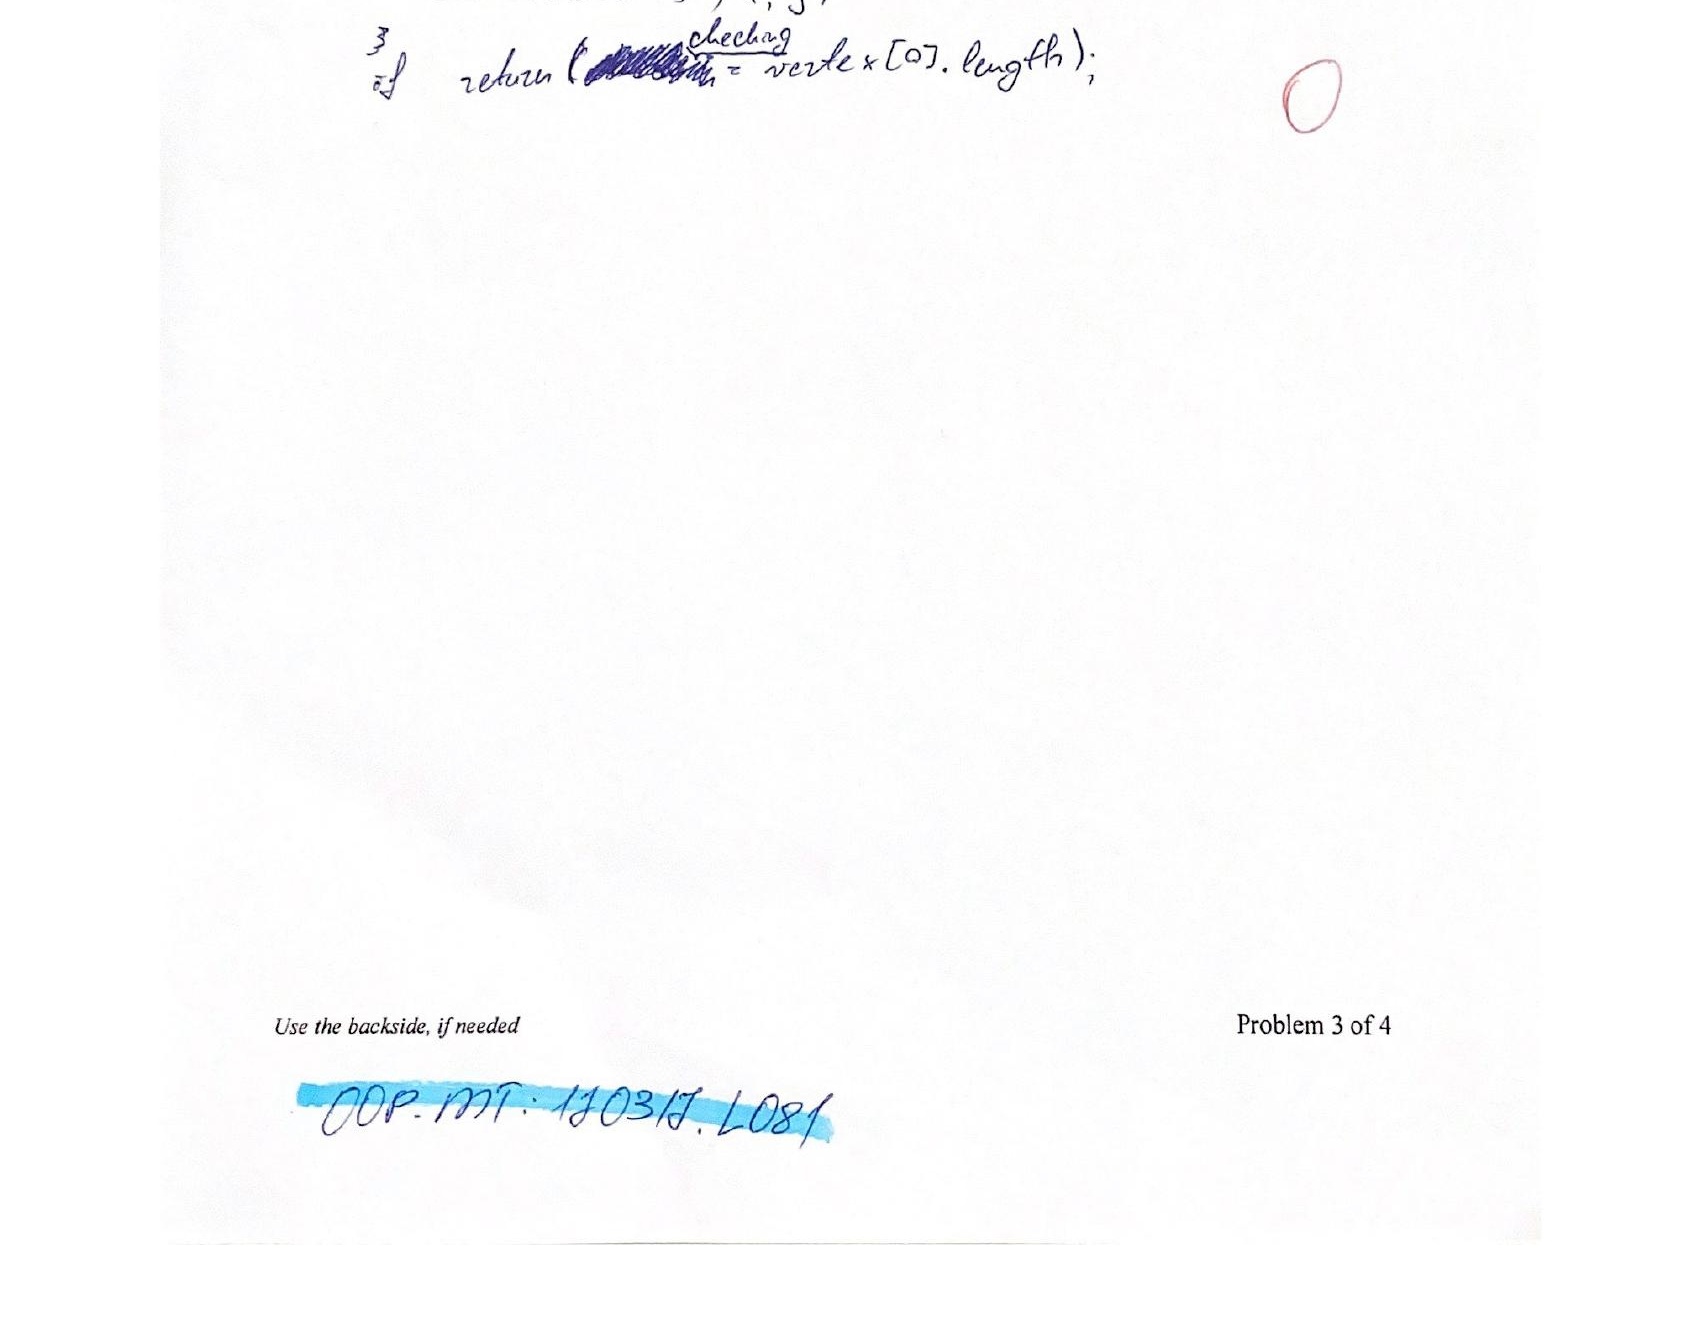 }
if return ( checking = vertex[0].length);
Use the backside, if needed
Problem 3 of 4
OOP.MT: 170317.L081